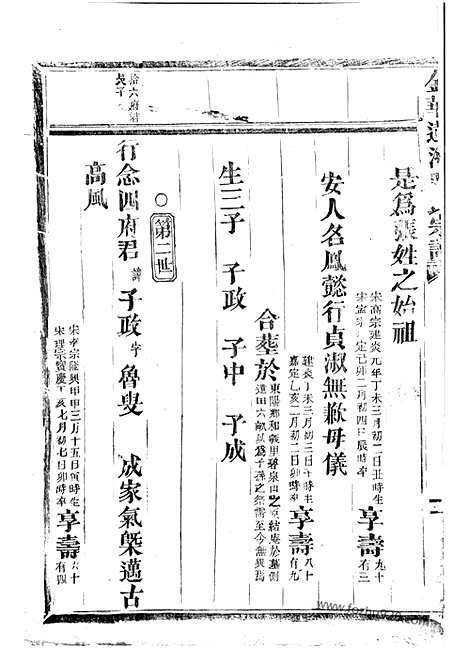 是為張姓之始祖
宋高宗建炎元年丁未三月初二日丑時生
宋寧宗嘉定己卯二月初四日辰時卒
享壽
九十
有三
安人名鳳懿行貞淑無歉母儀
建炎丁未三月初三日午時生
嘉定乙亥二月初二日卯時卒
享壽
八十
有九
合塟於
東陽鄉和義里碧泉山之原結庵於墓側
道田六畝以為子孫之祭需至今無異焉
生三子 子政 子中 子成
第二世
行念四府君 諱 子政 字 魯叟 成家氣槩邁古
高風
宋孝宗隆興甲申三月十五日寅時生
宋理宗寶慶丁亥七月初七日卯時卒
享壽
六十
有四